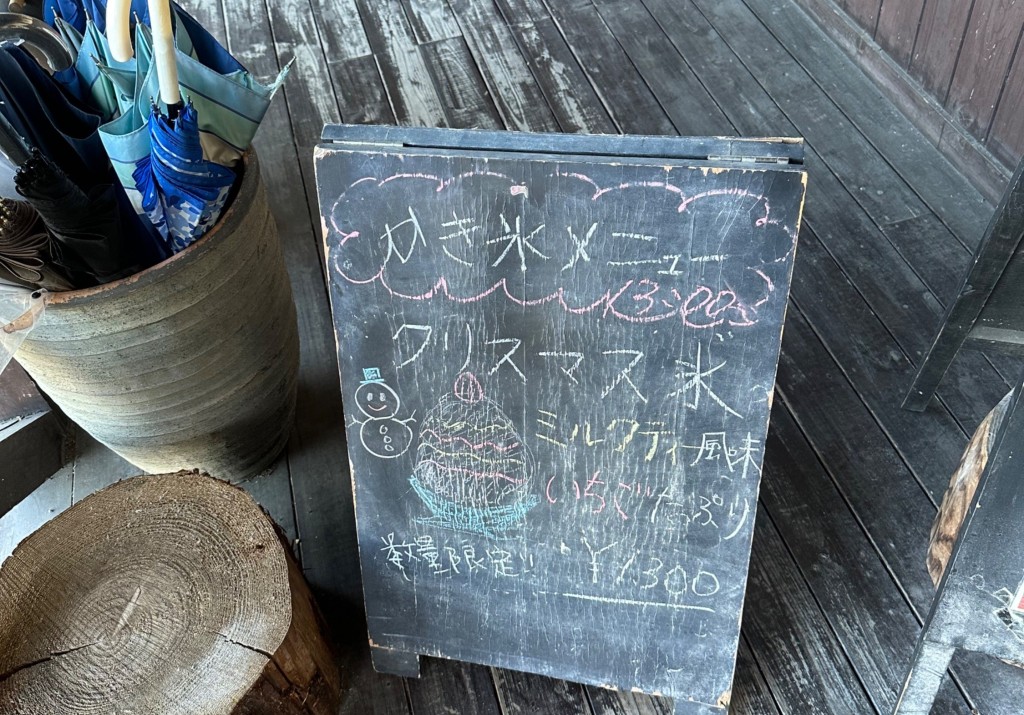 かき氷メニュー
(3:00~)
クリスマス氷
ミルクティー風味
いちごたっぷり
数量限定!!
¥1300